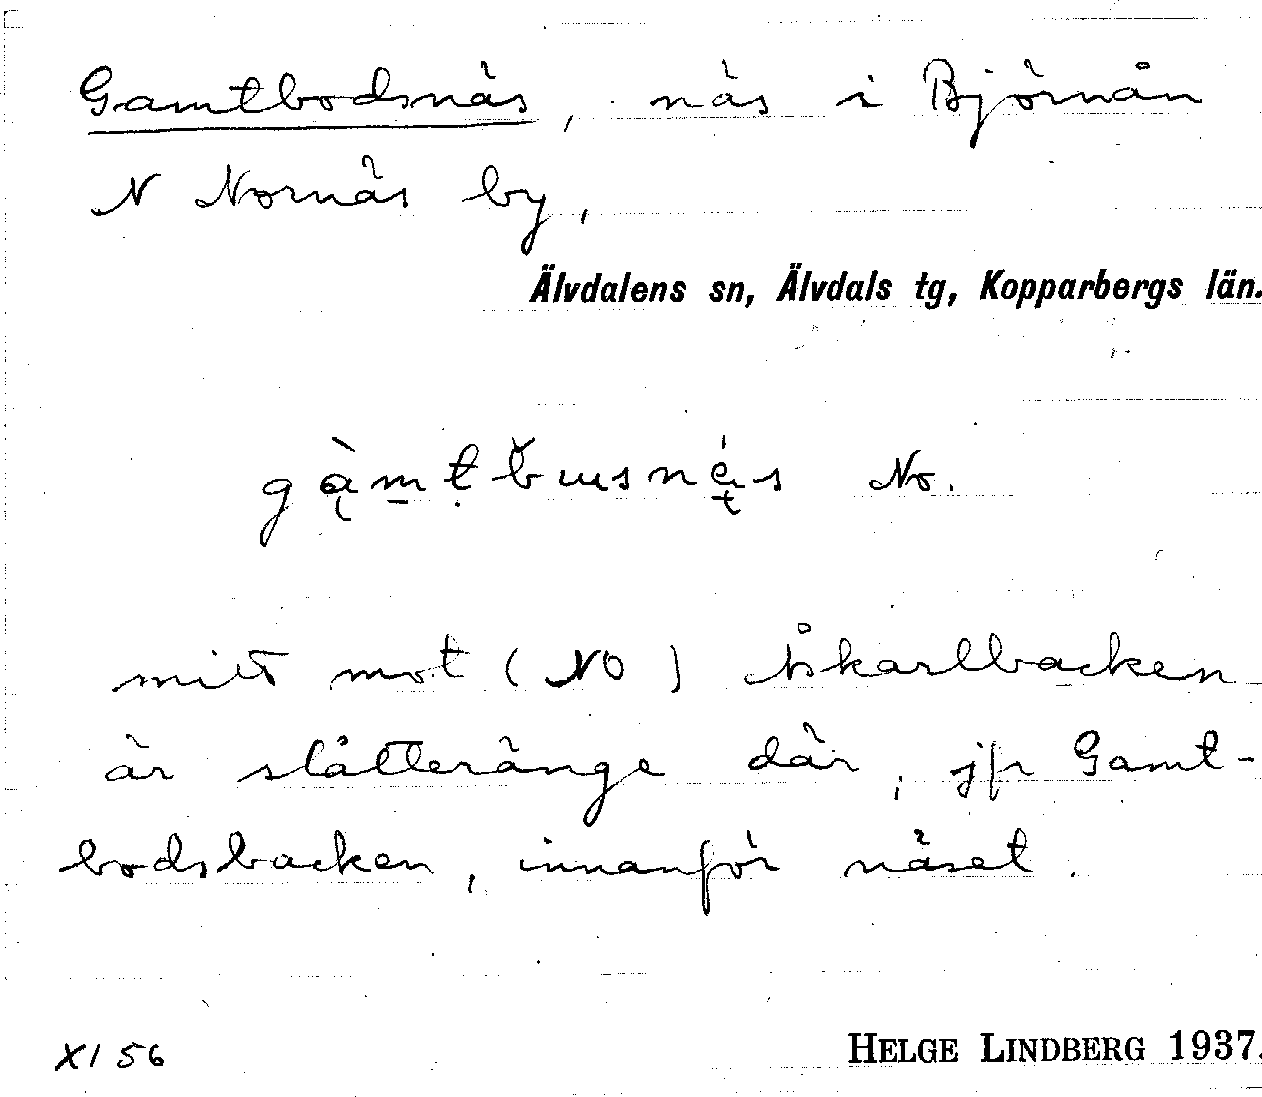 Gamtbodsnäs, näs i Björnån
N Nornäs by,
Älvdalens sn, Älvdals tg, Kopparbergs län.
gàmtbusnés No.
mitt mot (NO) Åskarlbacken
är slåtteränge där, jfr Gamt-
bodsbacken, innanför näset.
XI 56
HELGE LINDBERG 1937.